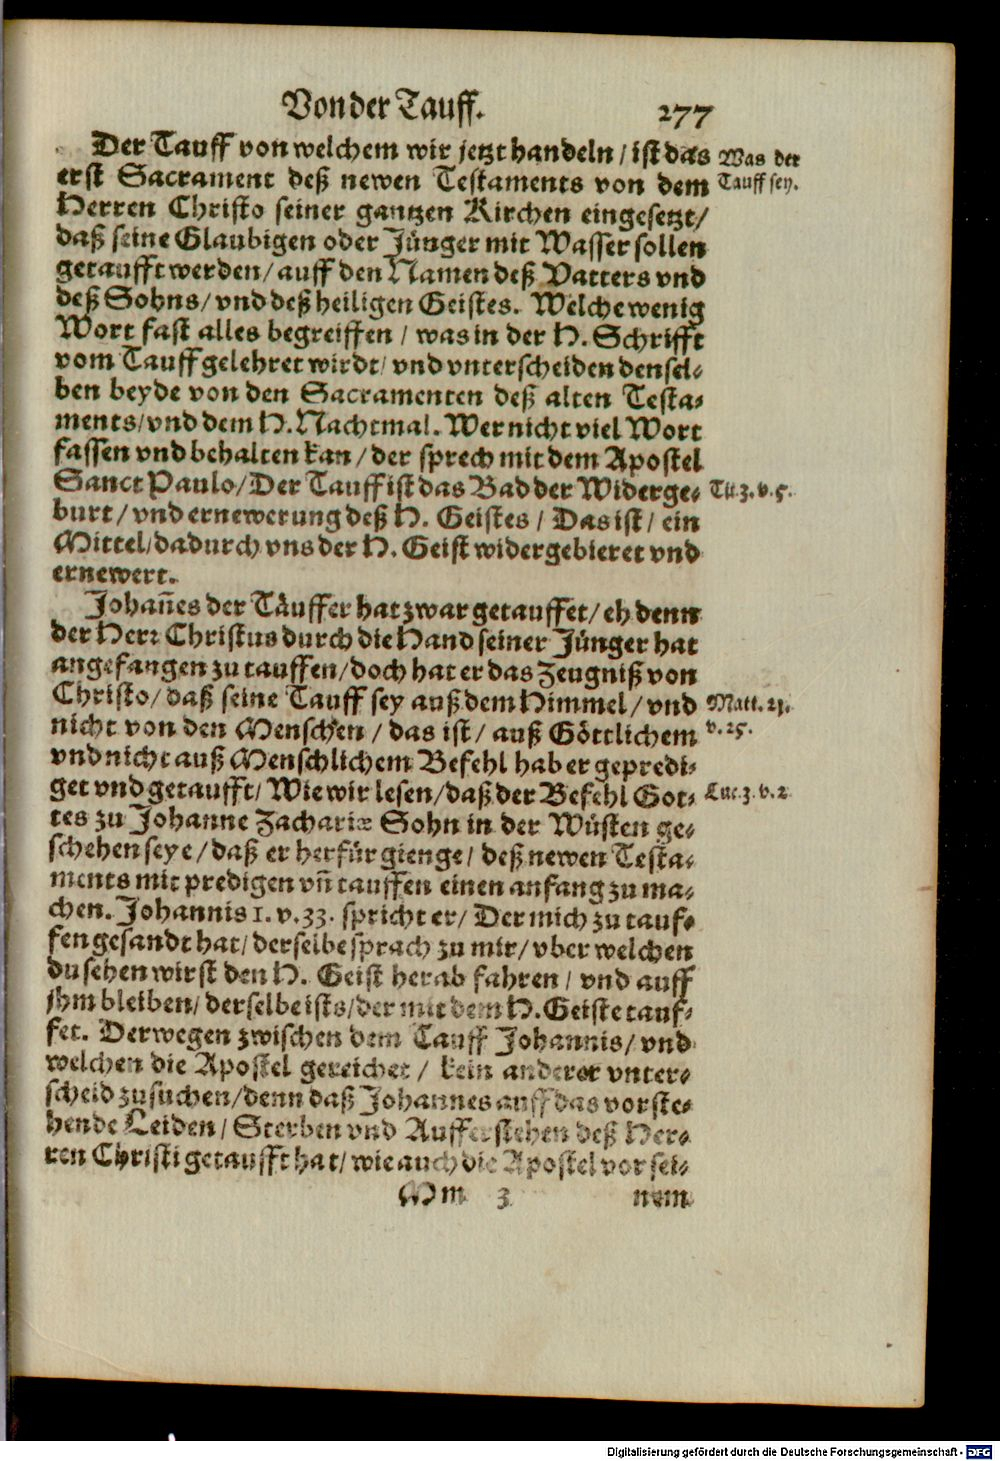 Von der Tauff. 277
Der Tauff von welchem wir jetzt handeln / ist das
Was der
erst Sacrament deß newen Testaments von dem
Tauff sey.
Herren Christo seiner gantzen Kirchen eingesetzt/
daß seine Glaubigen oder Jünger mit Wasser sollen
getaufft werden/ auff den Namen deß Vatters vnd
deß Sohns/ vnd deß heiligen Geistes. Welche wenig
Wort fast alles begreiffen / was in der H. Schrifft
vom Tauff gelehret wirdt/ vnd vnterscheiden densel-
ben beyde von den Sacramenten deß alten Testa-
ments/ vnd dem H. Nachtmal. Wer nicht viel Wort
fassen vnd behalten kan / der sprech mit dem Apostel
Sanct Paulo/ Der Tauff ist das Bad der Widerge-
Tit. 3. v. 5.
burt / vnd ernewerung deß H. Geistes / Das ist / ein
Mittel/ dadurch vns der H. Geist widergebieret vnd
ernewert.
Johañes der Täuffer hat zwar getauffet/ eh denn
der Herꝛ Christus durch die Hand seiner Jünger hat
angefangen zu tauffen/ doch hat er das Zeugniß von
Christo/ daß seine Tauff sey auß dem Himmel / vnd
Matt. 21.
nicht von den Menschen / das ist / auß Göttlichem
v. 25.
vnd nicht auß Menschlichem Befehl hab er gepredi-
get vnd getaufft/ Wie wir lesen/ daß der Befehl Got-
Luc. 3. v. 2
tes zu Johanne Zachariæ Sohn in der Wüsten ge-
schehen seye / daß er herfür gienge / deß newen Testa-
ments mit predigen vñ tauffen einen anfang zu ma-
chen. Johannis 1. v. 33. spricht er/ Der mich zu tauf-
fen gesandt hat/ derselbe sprach zu mir/ vber welchen
du sehen wirst den H. Geist herab fahren / vnd auff
jhm bleiben/ derselbe ists/ der mit dem H. Geiste tauf-
fet. Derwegen zwischen dem Tauff Johannis/ vnd
welchen die Apostel gereichet / kein anderer vnter-
scheid zu suchen/ denn daß Johannes auff das vorste-
hende Leiden / Sterben vnd Aufferstehen deß Her-
ren Christi getaufft hat/ wie auch die Apostel vor sei-
Mm 3 nem
Digitalisierung gefördert durch die Deutsche Forschungsgemeinschaft - DFG